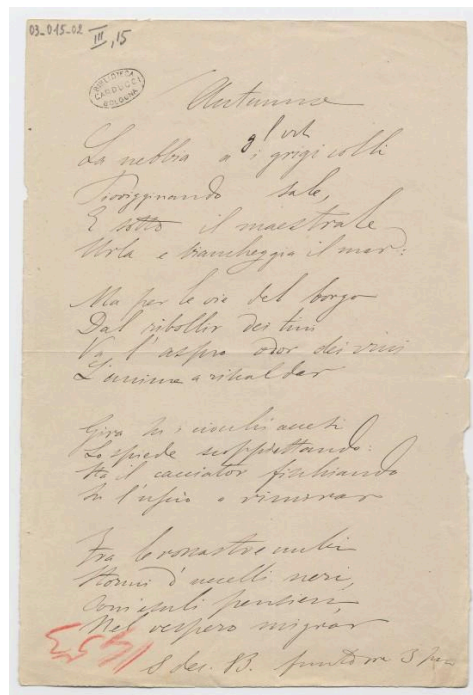 03-015-02
III, 15
BIBLIOTECA
CARDUCCI
BOLOGNA
Autunno
gl'irti
La nebbia a i grigi colli
Piovigginando sale,
E sotto il maestrale
Urla e biancheggia il mar:
Ma per le vie del borgo
Dal ribollir dei tini
Va l'aspro odor dei vini
L'anime a rallegrar
Gira su i ciocchi accesi
Lo spiede scoppiettando:
Sta il cacciator fischiando
Su l'uscio a rimirar
Tra le rossastre nubi
Stormi d'uccelli neri,
Com'esuli pensieri
Nel vespero migrar
8 dec.